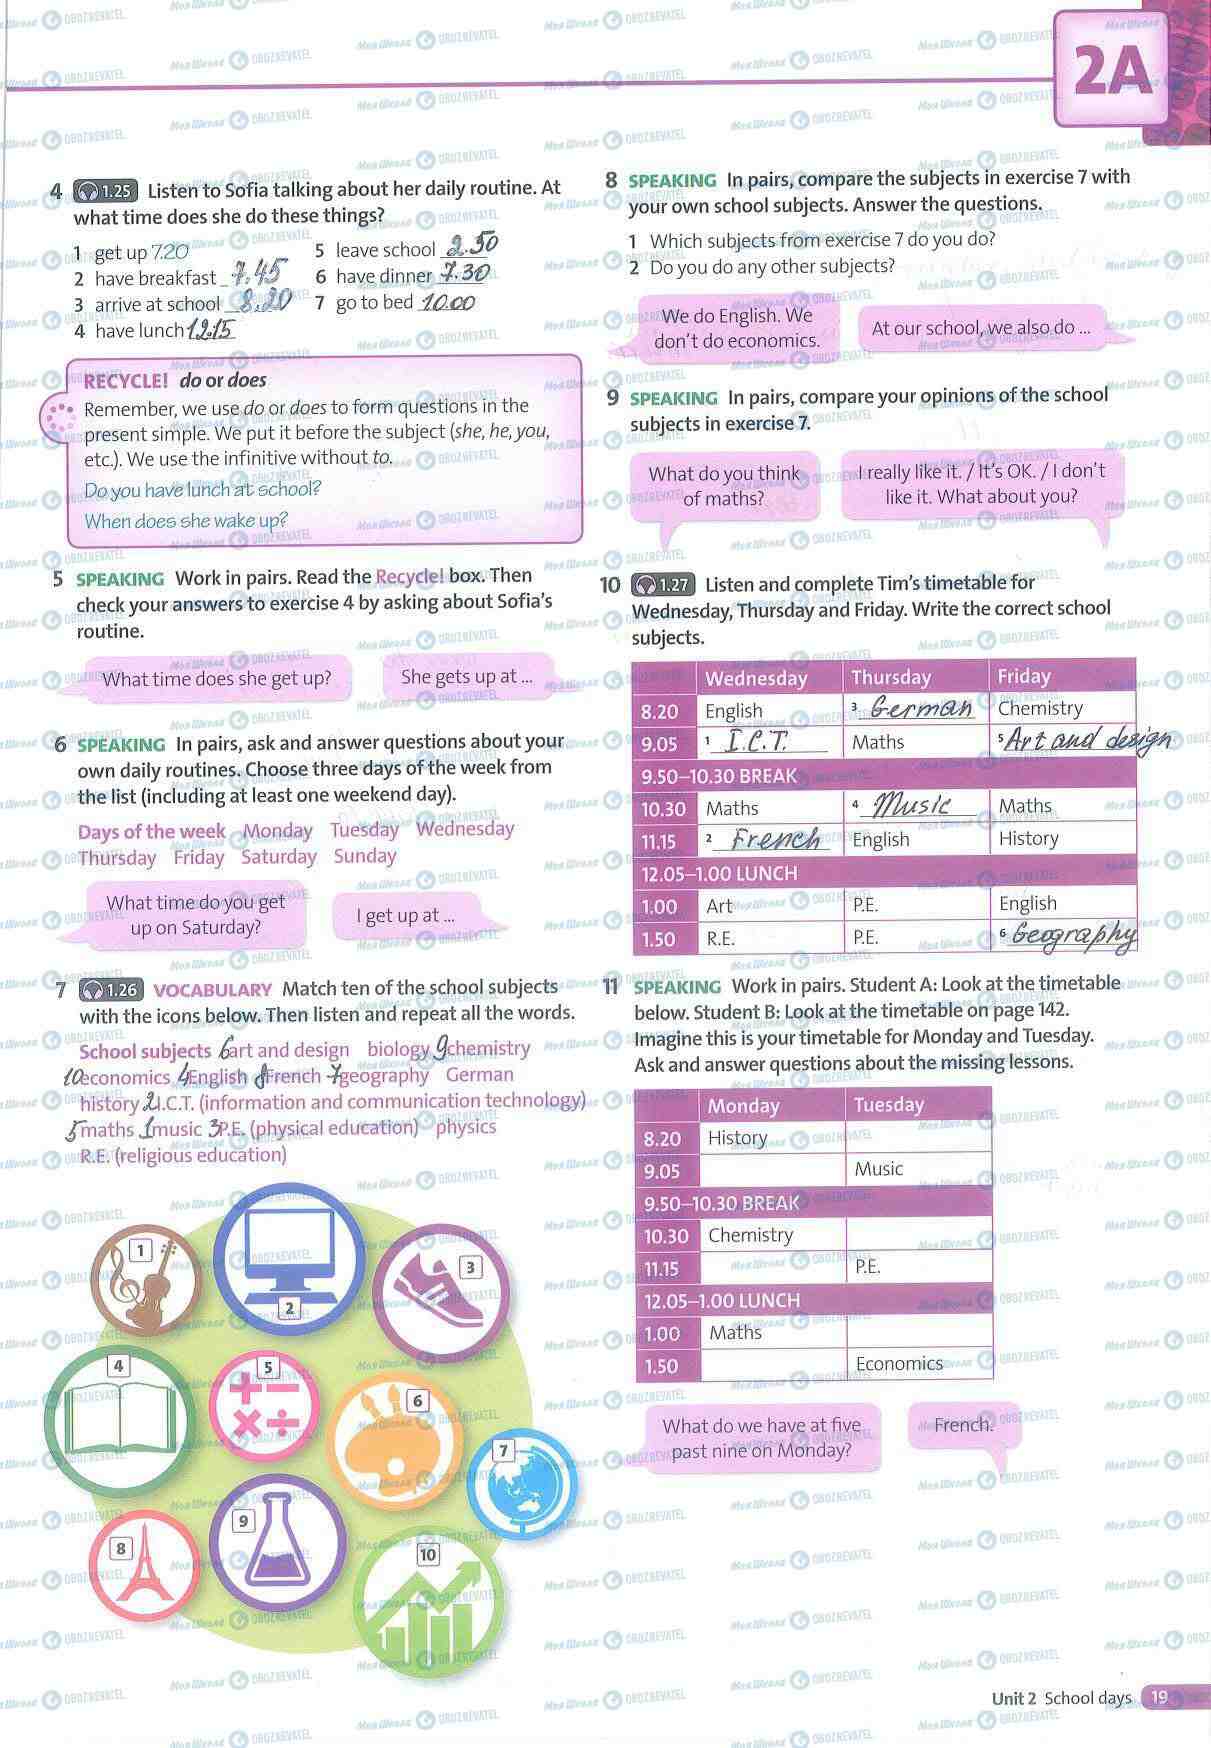 2A
4 1.25 Listen to Sofia talking about her daily routine. At
what time does she do these things?
1 get up 7.20
2 have breakfast 7.45
3 arrive at school 8.20
4 have lunch 12.15
5 leave school 2.50
6 have dinner 7.30
7 go to bed 10.00
RECYCLE! do or does
Remember, we use do or does to form questions in the
present simple. We put it before the subject (she, he, you,
etc.). We use the infinitive without to.
Do you have lunch at school?
When does she wake up?
5 SPEAKING Work in pairs. Read the Recycle! box. Then
check your answers to exercise 4 by asking about Sofia's
routine.
What time does she get up?
She gets up at ...
6 SPEAKING In pairs, ask and answer questions about your
own daily routines. Choose three days of the week from
the list (including at least one weekend day).
Days of the week Monday Tuesday Wednesday
Thursday Friday Saturday Sunday
What time do you get
up on Saturday?
I get up at ...
7 1.26 VOCABULARY Match ten of the school subjects
with the icons below. Then listen and repeat all the words.
School subjects 6 art and design biology 9 chemistry
10 economics 4 English 8 French 7 geography German
history 2 I.C.T. (information and communication technology)
5 maths 1 music 3 P.E. (physical education) physics
R.E. (religious education)
1
2
3
4
5
6
7
8
9
10
8 SPEAKING In pairs, compare the subjects in exercise 7 with
your own school subjects. Answer the questions.
1 Which subjects from exercise 7 do you do?
2 Do you do any other subjects?
We do English. We
don't do economics.
At our school, we also do ...
9 SPEAKING In pairs, compare your opinions of the school
subjects in exercise 7.
What do you think
of maths?
I really like it. / It's OK. / I don't
like it. What about you?
10 1.27 Listen and complete Tim's timetable for
Wednesday, Thursday and Friday. Write the correct school
subjects.
Wednesday Thursday Friday
8.20 English 3 German Chemistry
9.05 1 I.C.T. Maths 5 Art and design
9.50–10.30 BREAK
10.30 Maths 4 Music Maths
11.15 2 French English History
12.05–1.00 LUNCH
1.00 Art P.E. English
1.50 R.E. P.E. 6 Geography
11 SPEAKING Work in pairs. Student A: Look at the timetable
below. Student B: Look at the timetable on page 142.
Imagine this is your timetable for Monday and Tuesday.
Ask and answer questions about the missing lessons.
Monday Tuesday
8.20 History
9.05 Music
9.50–10.30 BREAK
10.30 Chemistry
11.15 P.E.
12.05–1.00 LUNCH
1.00 Maths
1.50 Economics
What do we have at five
past nine on Monday?
French.
Unit 2 School days 19